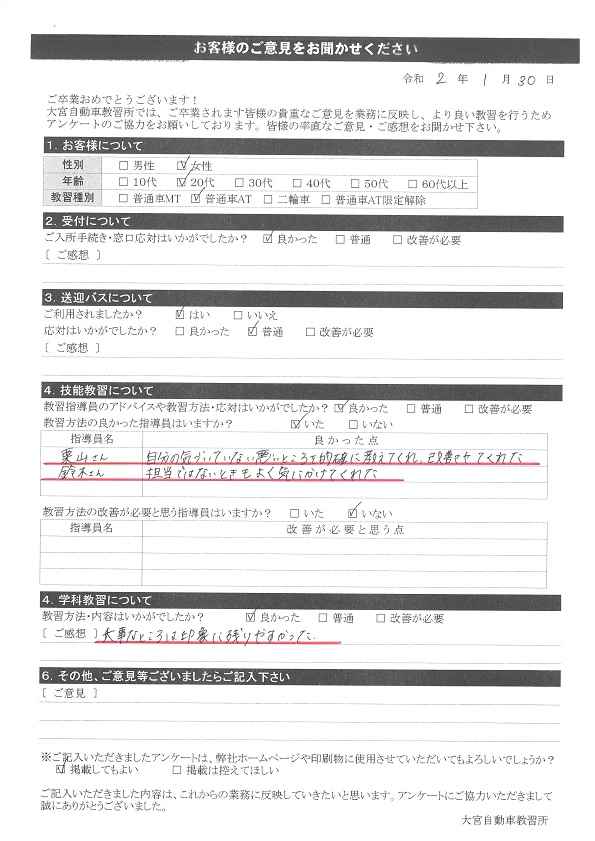 お客様のご意見をお聞かせください
令和 2 年 1 月 30 日
ご卒業おめでとうございます！
大宮自動車教習所では、ご卒業されます皆様の貴重なご意見を業務に反映し、より良い教習を行うため
アンケートのご協力をお願いしております。皆様の率直なご意見・ご感想をお聞かせ下さい。
1. お客様について
性別 □ 男性 ☑ 女性
年齢 □ 10代 ☑ 20代 □ 30代 □ 40代 □ 50代 □ 60代以上
教習種別 □ 普通車MT ☑ 普通車AT □ 二輪車 □ 普通車AT限定解除
2. 受付について
ご入所手続き・窓口応対はいかがでしたか？ ☑ 良かった □ 普通 □ 改善が必要
〔 ご感想 〕
3. 送迎バスについて
ご利用されましたか？ ☑ はい □ いいえ
応対はいかがでしたか？ □ 良かった ☑ 普通 □ 改善が必要
〔 ご感想 〕
4. 技能教習について
教習指導員のアドバイスや教習方法・応対はいかがでしたか？ ☑ 良かった □ 普通 □ 改善が必要
教習方法の良かった指導員はいますか？ ☑ いた □ いない
指導員名 良かった点
栗山さん 自分の気づいていない悪いところを的確に教えてくれ、改善させてくれた
鈴木さん 担当ではないときもよく気にかけてくれた
教習方法の改善が必要と思う指導員はいますか？ □ いた ☑ いない
指導員名 改善が必要と思う点
4. 学科教習について
教習方法・内容はいかがでしたか？ ☑ 良かった □ 普通 □ 改善が必要
〔 ご感想 〕 大事なところは印象に残りやすかった.
6. その他、ご意見等ございましたらご記入下さい
〔 ご意見 〕
※ご記入いただきましたアンケートは、弊社ホームページや印刷物に使用させていただいてもよろしいでしょうか？
☑ 掲載してもよい □ 掲載は控えてほしい
ご記入いただきました内容は、これからの業務に反映していきたいと思います。アンケートにご協力いただきまして
誠にありがとうございました。
大宮自動車教習所